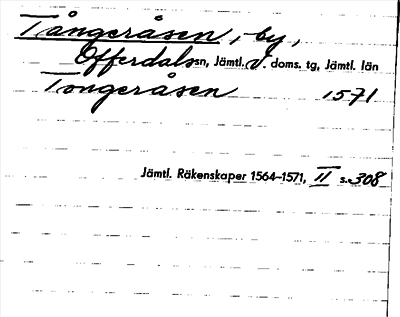 Tångeråsen, by,
Offerdals sn, Jämtl. v. doms. tg, Jämtl. län
Tongeråsen 1571
Jämtl. Räkenskaper 1564–1571, II s. 308